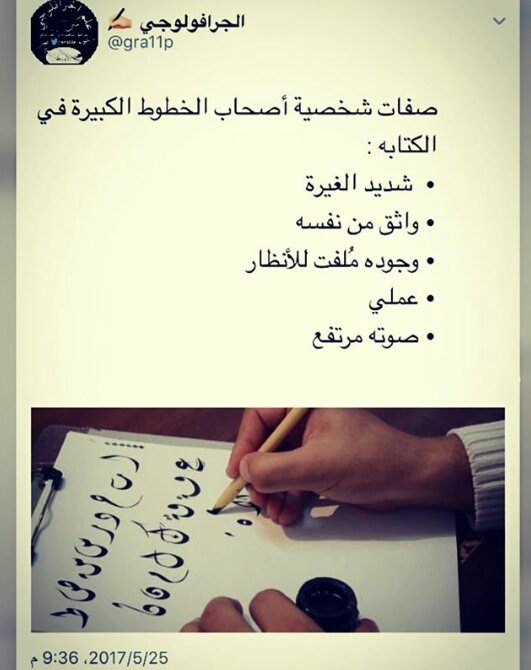 الجرافولوجي
@gra11p
صفات شخصية أصحاب الخطوط الكبيرة في
الكتابه :
• شديد الغيرة
• واثق من نفسه
• وجوده مُلفت للأنظار
• عملي
• صوته مرتفع
2017/5/25، 9:36 م